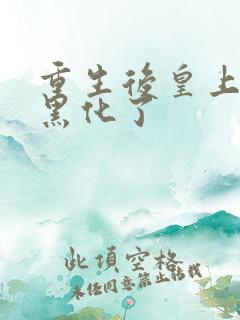 重生後皇上
黑化了
此項空格
未经同意禁止转载